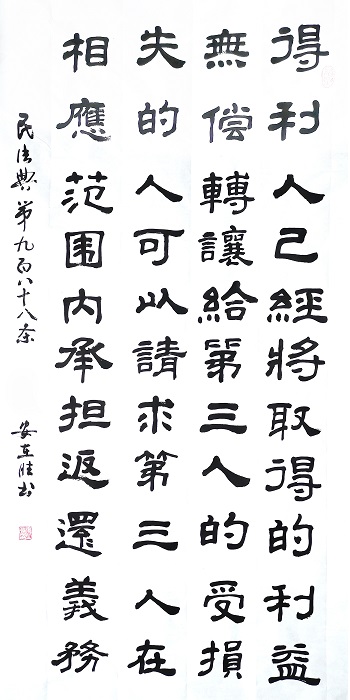 得利人已經將取得的利益
無偿轉讓給第三人的受損
失的人可以請求第三人在
相應范围内承担返還義務
民法典第九百八十八条
安在胜书